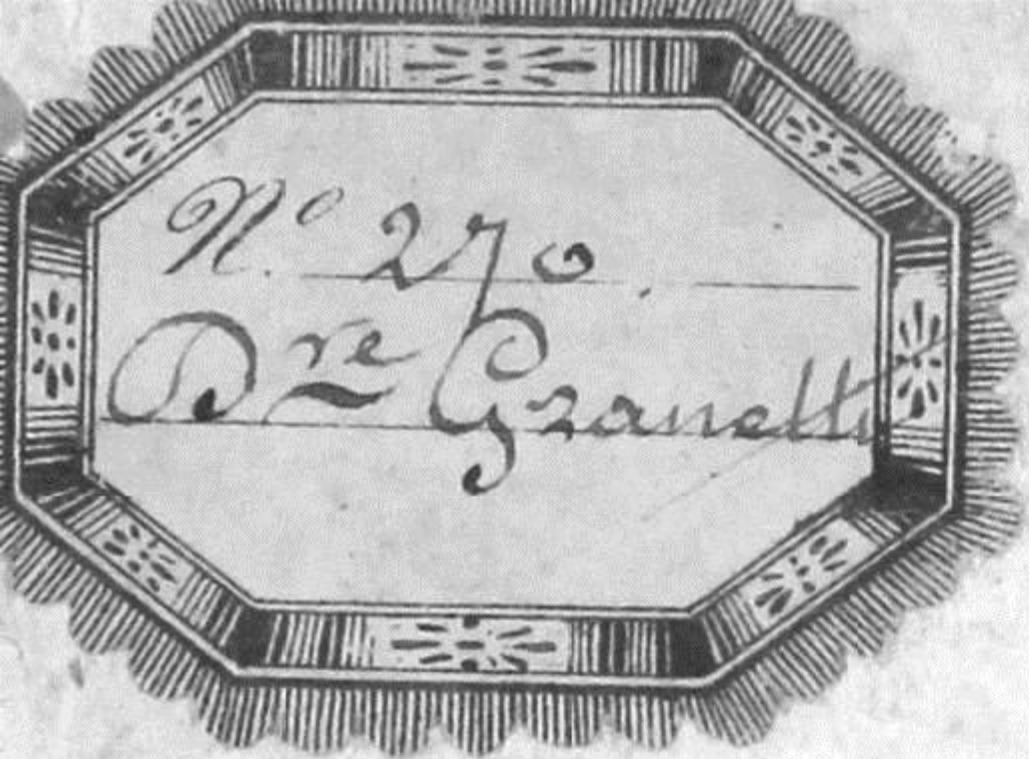 Nº 270.
Dre Granetti